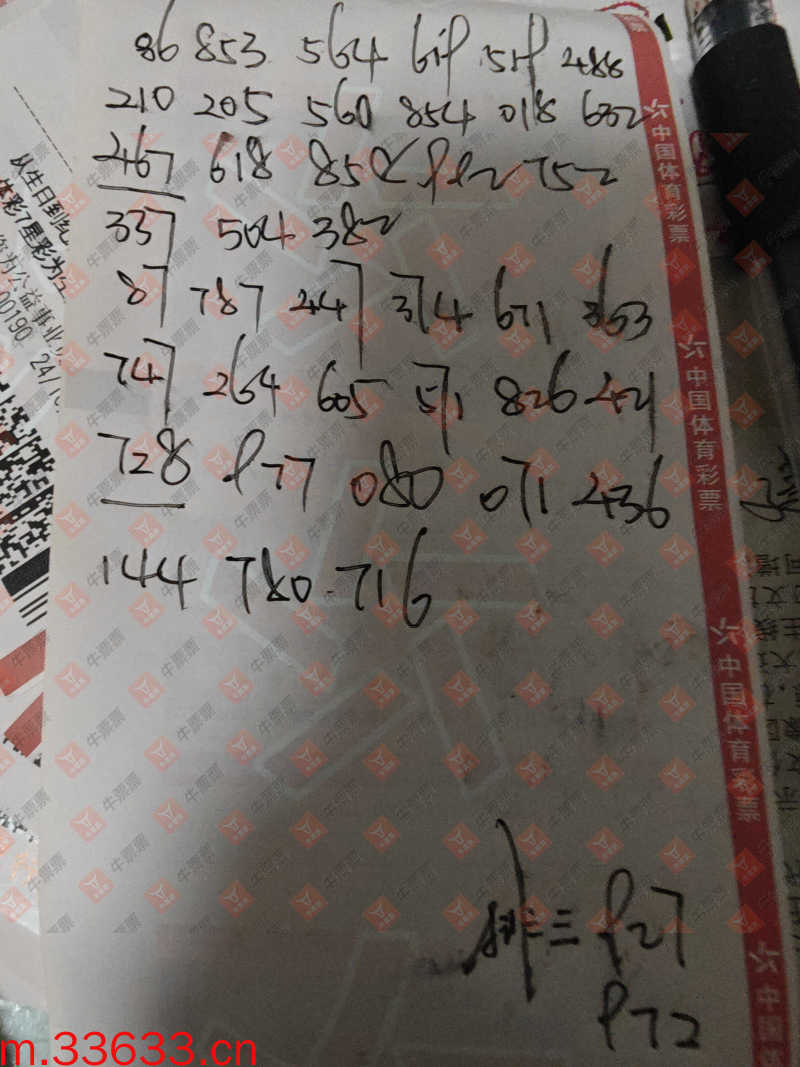 86 853 564 619 519 488
210 205 560 854 018 632
467 618 858 992 752
337 504 382
87 787 447 374 671 363
747 264 605 571 826 421
728 977 080 071 436
144 780 716
排三 927
972
中国体育彩票
中国体育彩票
中国体育彩票
中国体育彩票
从生日到
体彩7星彩为
为公益事业
00190 24/1
牛票票
m.33633.cn